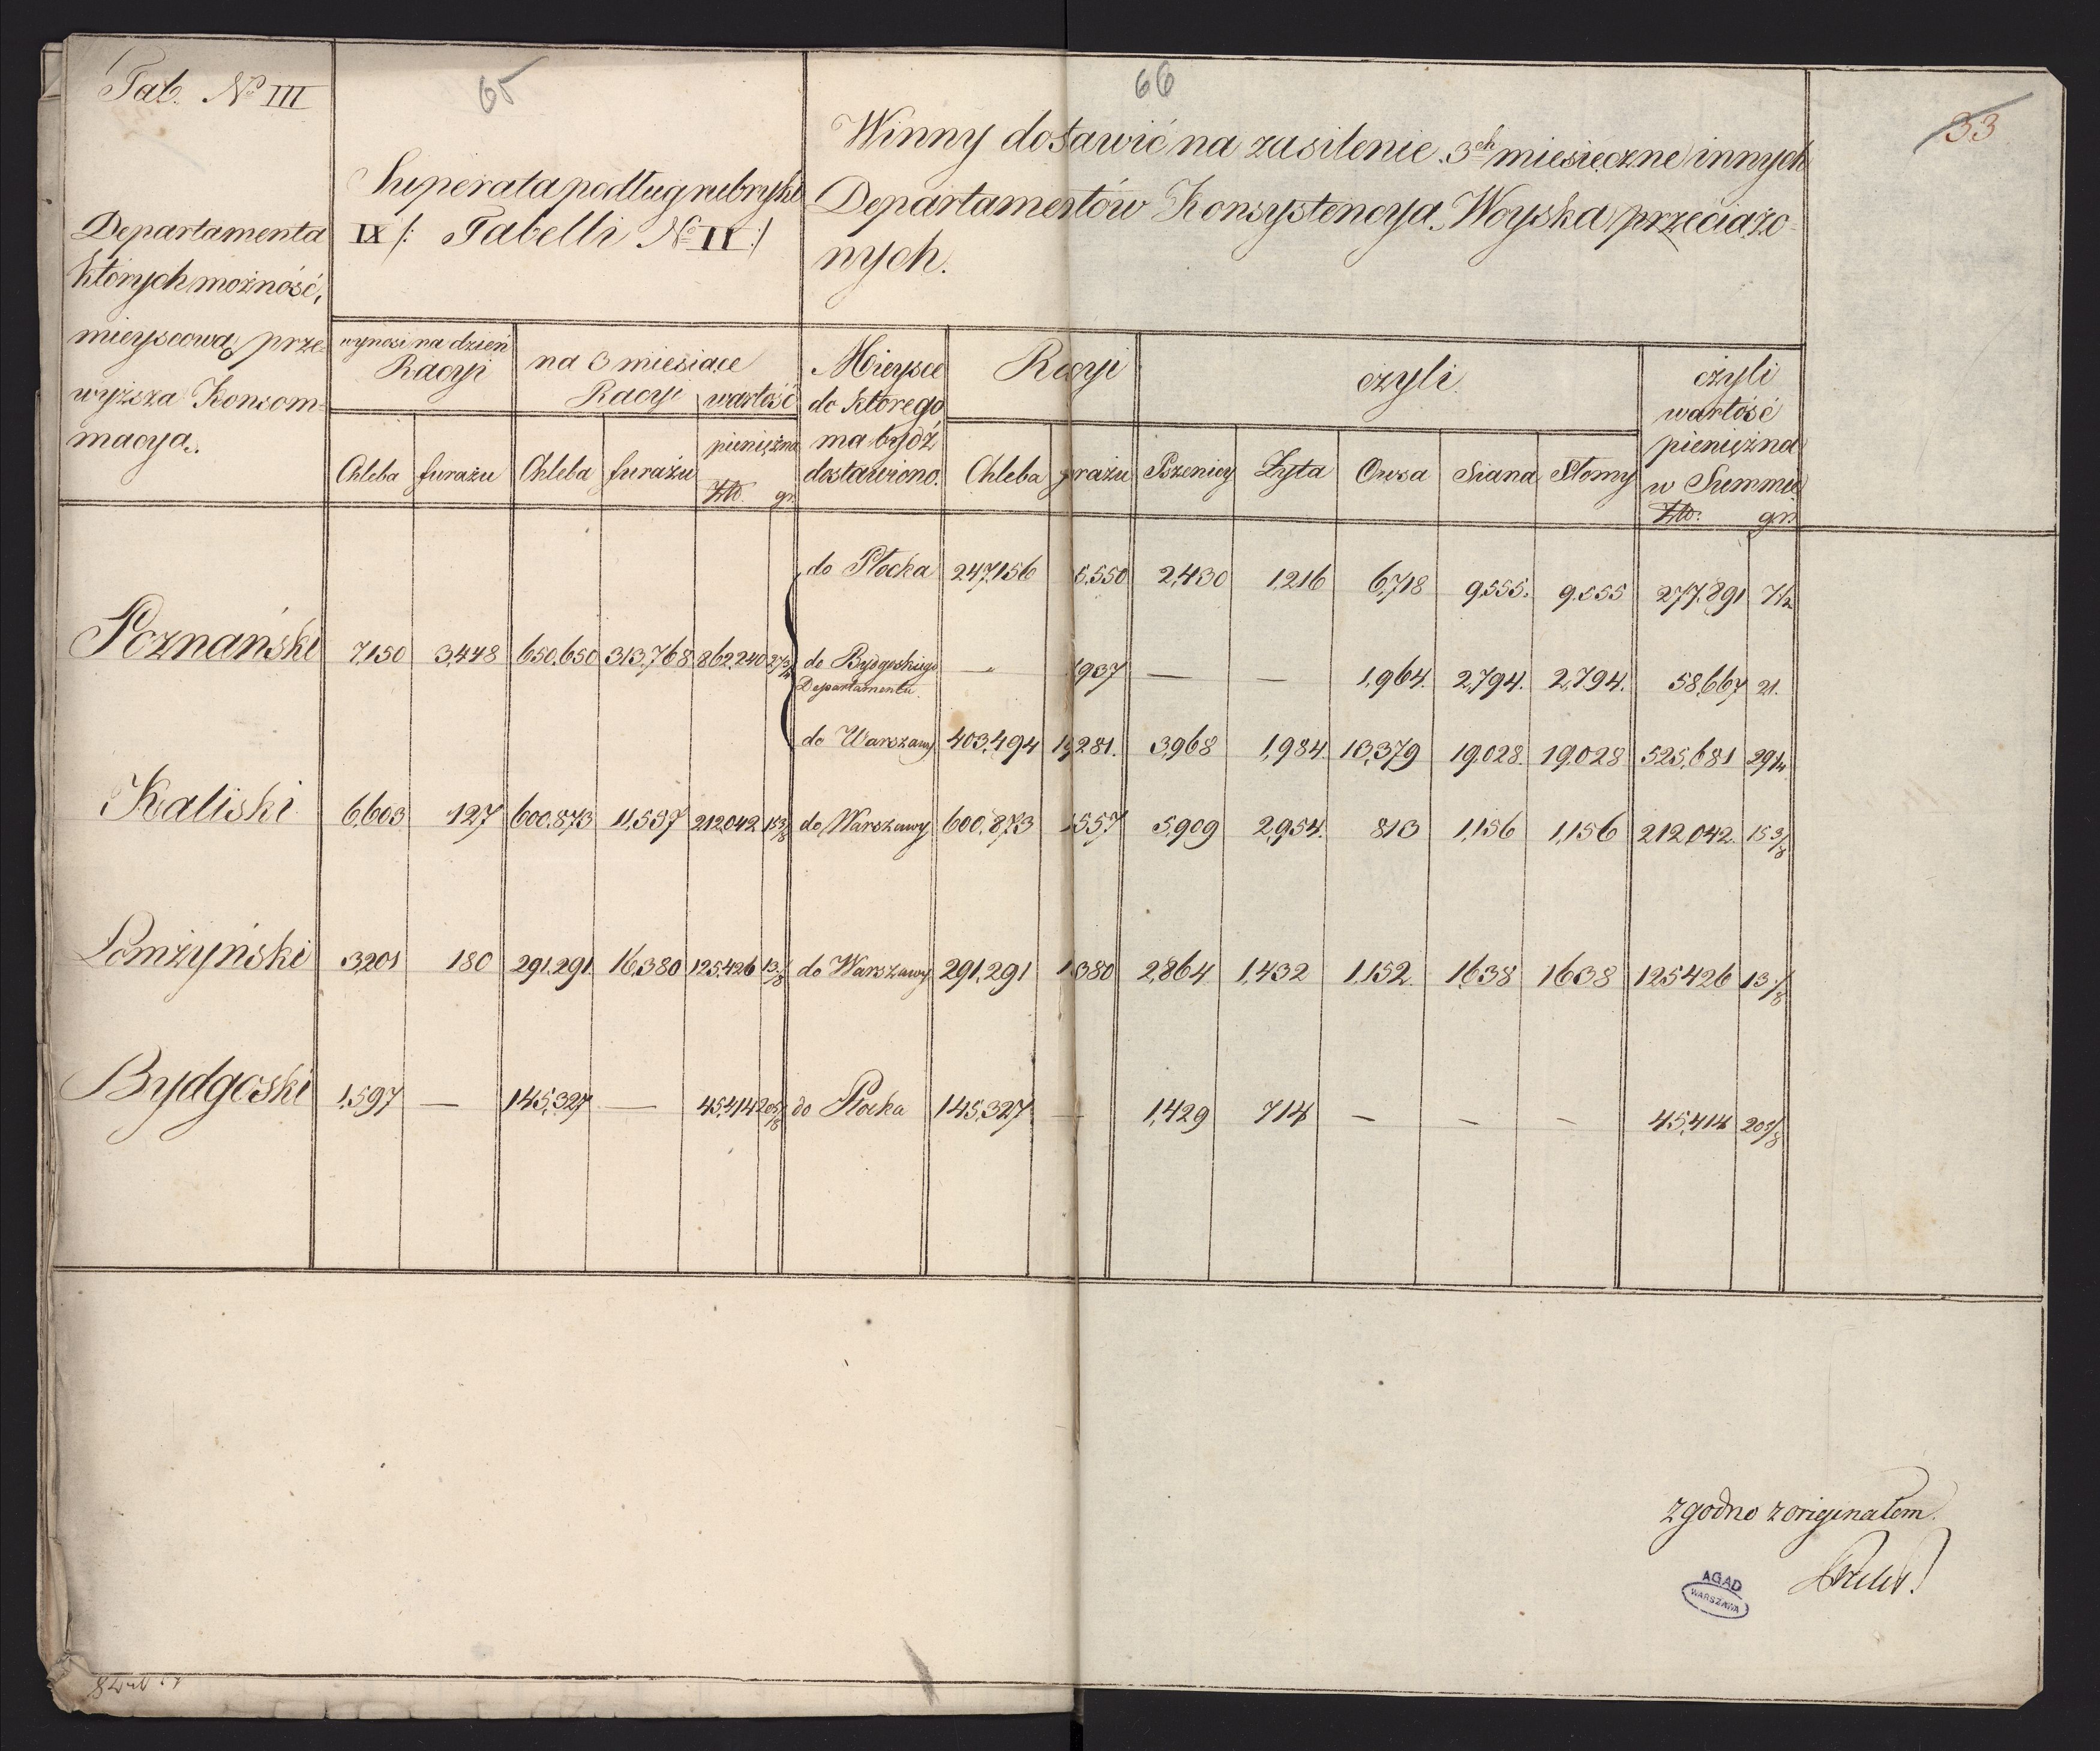 Tab. No III
65
66
33
Departamenta
których możność
mieyscowa prze=
wyższa Konsom=
macyą.
Superata podług rubryki
IX /: Tabelli No II :/
Winny dostawić na zasilenie 3ch miesięczne innych
Departamentów Konsystencyą Woyska przeciążo=
nych.
wynosi na dzień
Racyi
na 3 miesiące
Racyi wartość
pieniężna
Chleba furażu Chleba furażu Złt. gr.
Mieysce
do którego
ma bydź
dostawiono.
Racyi
Chleba furażu
czyli
Pszenicy Żyta Owsa Siana Słomy
czyli
wartość
pieniężna
w Summie
Złt. gr.
do Płocka 247,156 5,550 2,430 1,216 6,718 9,555. 9,555 277,891 7½
Poznański 7,150 3,448 650,650 313,768 862,240 27¾ do Bydgoskiego — 937 — — 1,964. 2,794. 2,794. 58,667 21.
Departamentu.
do Warszawy 403,494 19,281. 3,968 1,984. 13,379 19,028. 19,028 525,681 29¼
Kaliski 6,603 127 600,873 11,557 212,042 15 3/8 do Warszawy 600,873 557 5,909 2,954. 813 1,156 1,156 212,042. 15 3/8
Łomżyński 3,201 180 291,291. 16,380 125,426 13 1/8 do Warszawy 291,291 380 2,864 1,432 1,152. 1638 1638 125426 13 1/8
Bydgoski 1,597 — 145,327 — 45,414 20 5/8 do Płocka 145,327 — 1,429 714 — — — 45,414 20 5/8
zgodno z originałem.
AGAD
WARSZAWA